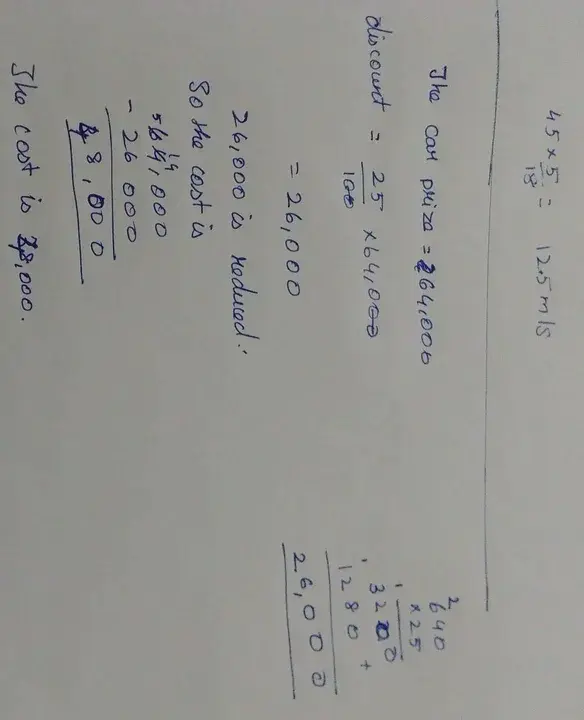 45 × 5/18 = 12.5 m/s
The car prize = 64,000
discount = 25/100 × 64,000
= 26,000
26,000 is reduced.
So the cost is
64,000
- 26 000
8,000
The cost is 38,000.
2
640
×25
3200
1280 +
26,000